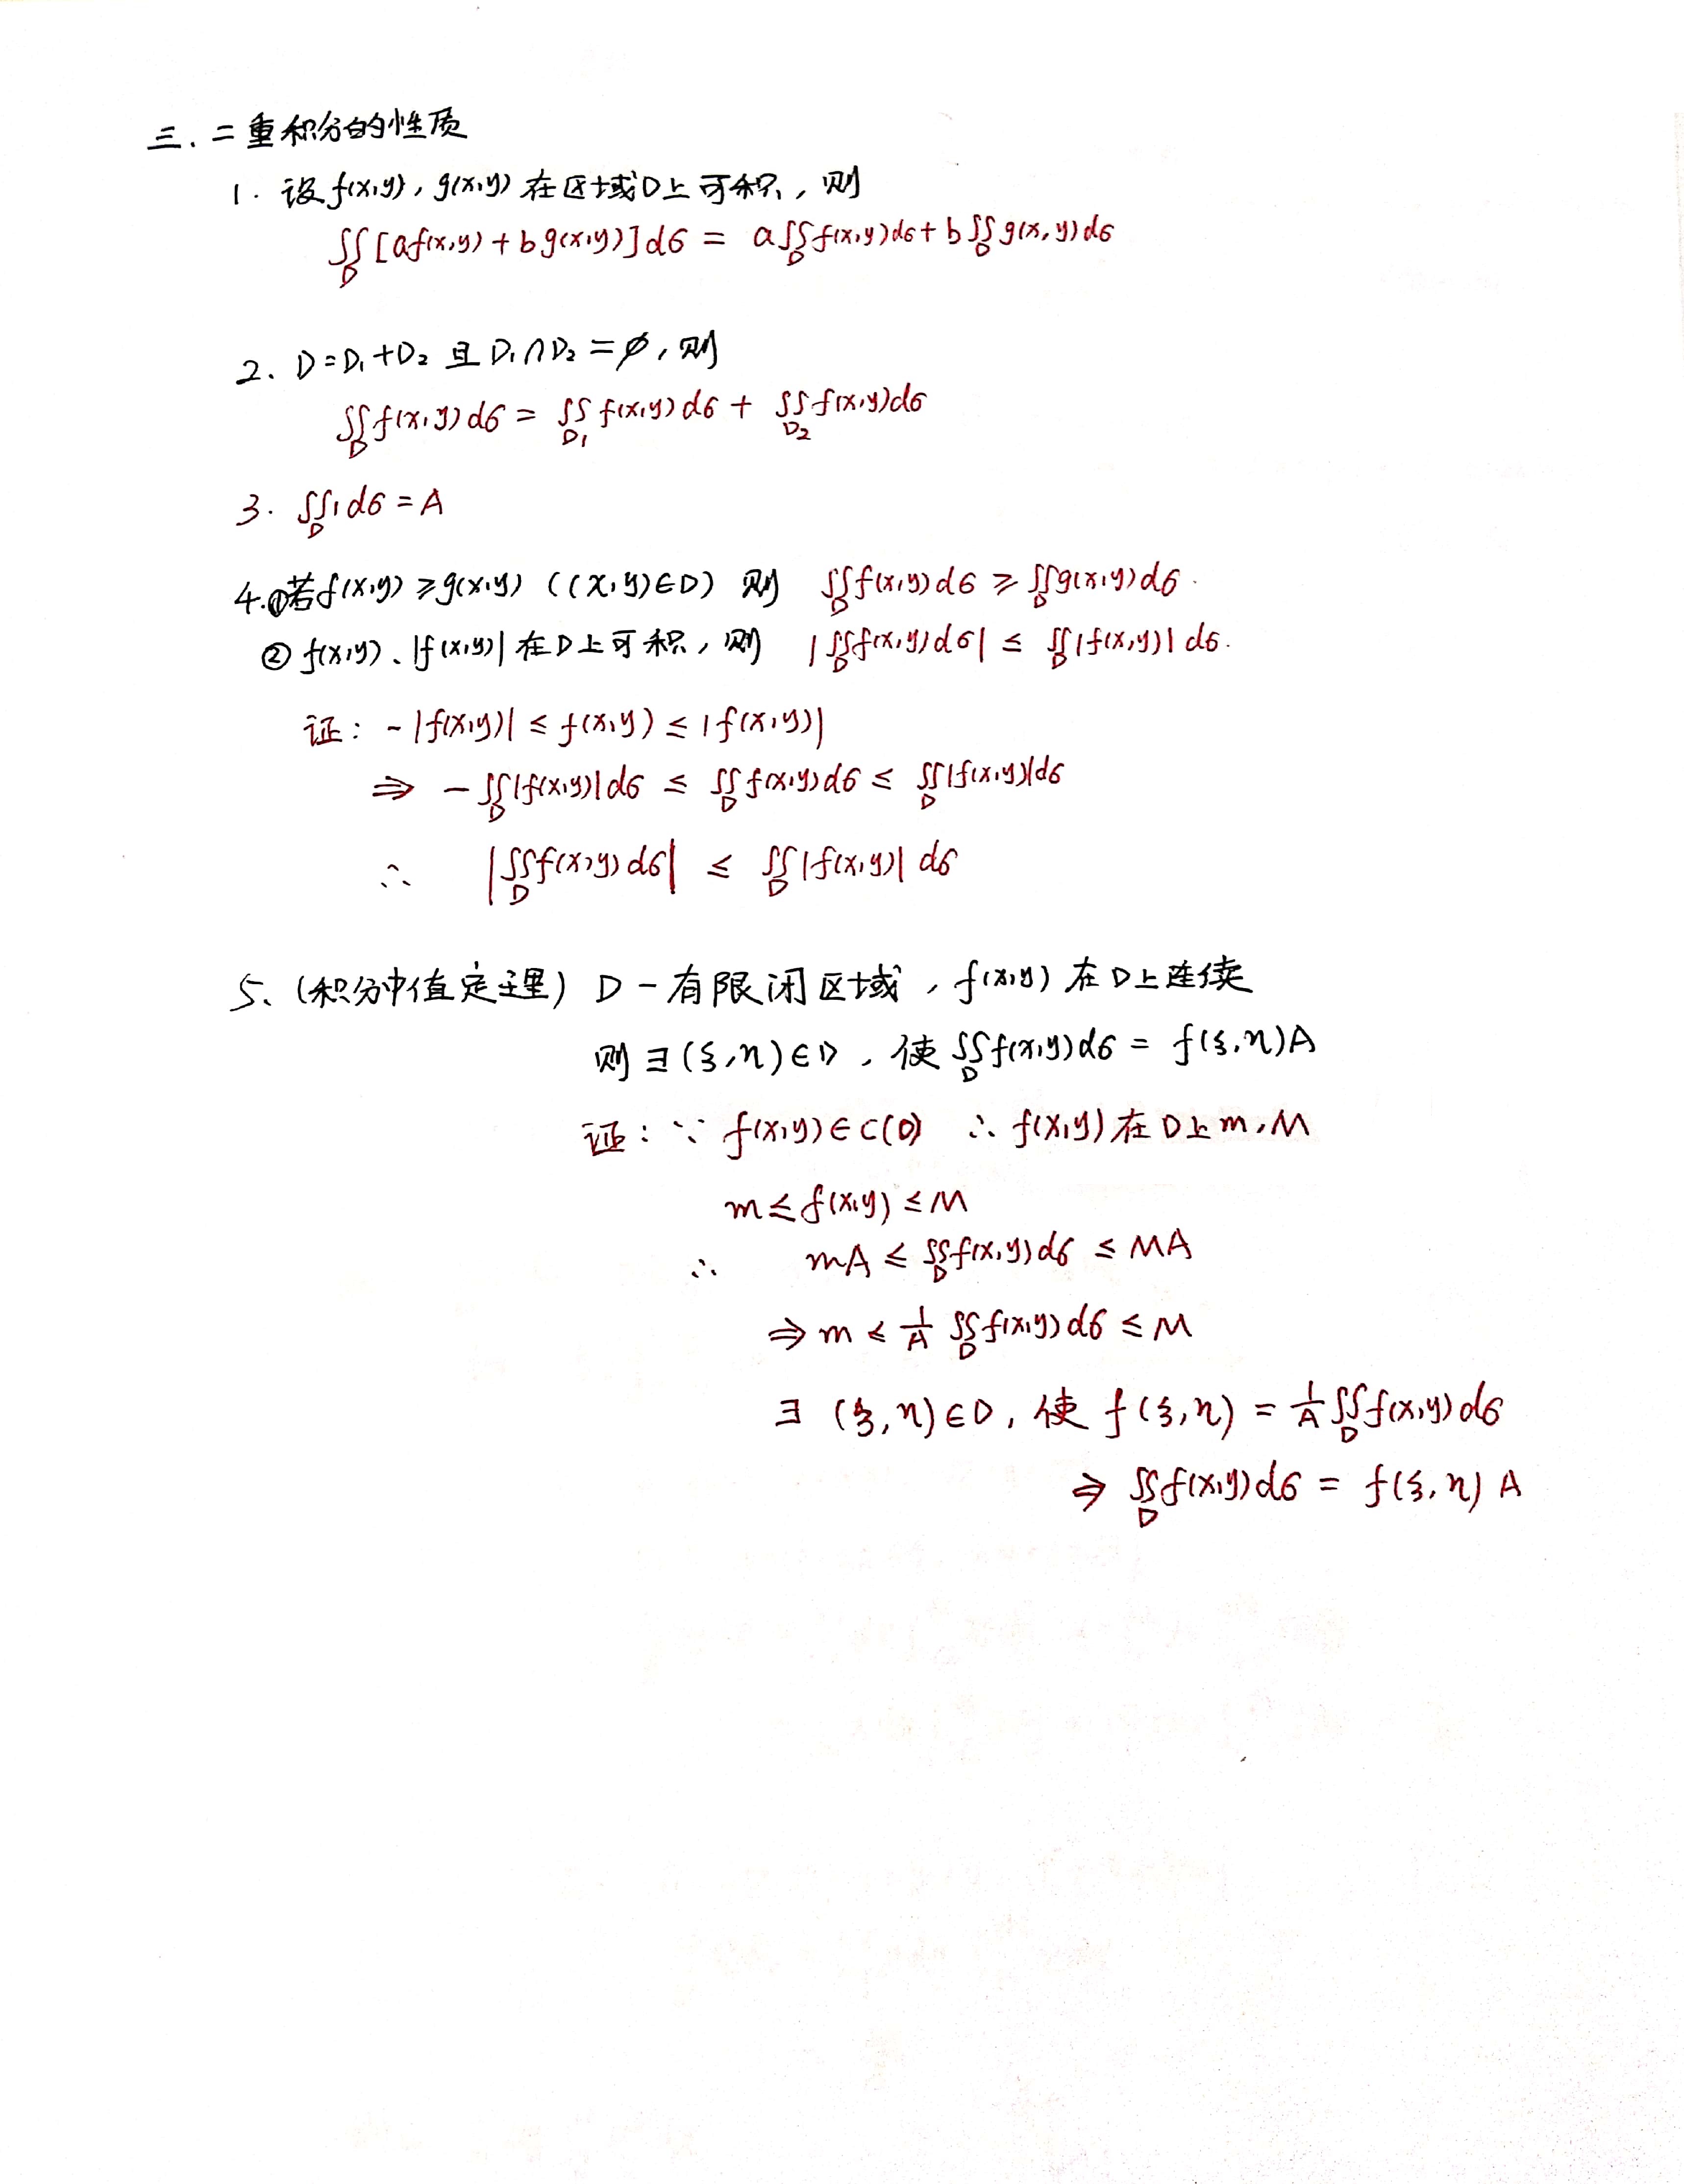 三、二重积分的性质
1. 设f(x,y), g(x,y)在区域D上可积, 则
∬_D [af(x,y)+bg(x,y)]dσ = a∬_D f(x,y)dσ + b∬_D g(x,y)dσ
2. D=D₁+D₂ 且 D₁∩D₂=∅, 则
∬_D f(x,y)dσ = ∬_{D1} f(x,y)dσ + ∬_{D2} f(x,y)dσ
3. ∬_D 1dσ = A
4.①若f(x,y)≥g(x,y) ((x,y)∈D) 则 ∬_D f(x,y)dσ ≥ ∬_D g(x,y)dσ.
② f(x,y)、|f(x,y)|在D上可积, 则 |∬_D f(x,y)dσ| ≤ ∬_D |f(x,y)|dσ.
证: -|f(x,y)| ≤ f(x,y) ≤ |f(x,y)|
⇒ -∬_D |f(x,y)|dσ ≤ ∬_D f(x,y)dσ ≤ ∬_D |f(x,y)|dσ
∴ |∬_D f(x,y)dσ| ≤ ∬_D |f(x,y)|dσ
5、(积分中值定理) D-有限闭区域, f(x,y)在D上连续
则∃(ξ,η)∈D, 使∬_D f(x,y)dσ = f(ξ,η)A
证: ∵ f(x,y)∈C(D) ∴ f(x,y)在D上m,M
m≤f(x,y)≤M
∴ mA ≤ ∬_D f(x,y)dσ ≤ MA
⇒ m ≤ 1/A ∬_D f(x,y)dσ ≤ M
∃ (ξ,η)∈D, 使 f(ξ,η) = 1/A ∬_D f(x,y)dσ
⇒ ∬_D f(x,y)dσ = f(ξ,η)A